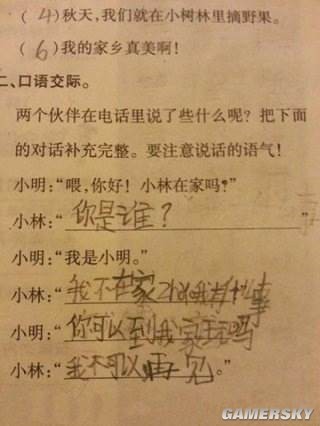 ( 4 )秋天，我们就在小树林里摘野果。
( 6 )我的家乡真美啊！
二、口语交际。
两个伙伴在电话里说了些什么呢？把下面
的对话补充完整。要注意说话的语气！
小明：“喂，你好！小林在家吗？”
小林：“你是谁？
小明：“我是小明。”
小林：“我不在家 我有什 事
小明：“你可以到我家玩吗
小林：“我不可以再见。”
GAMERSKY